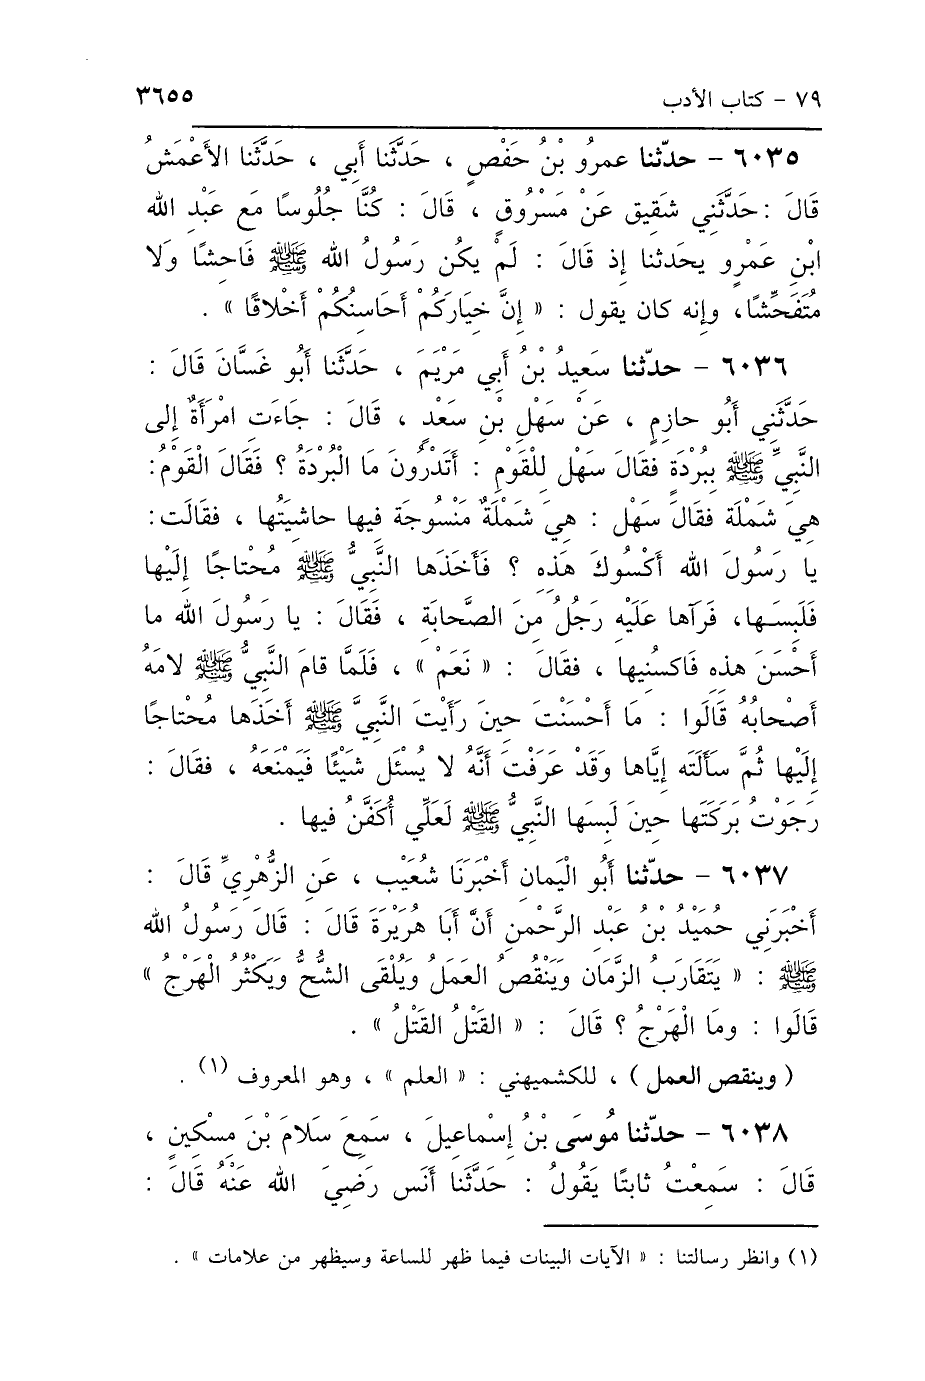 ٧٩ - كتاب الأدب ٣٦٥٥
٦٠٣٥ - حدّثنا عمرو بْنُ حَفْصٍ ، حَدَّثَنا أبي ، حَدَّثَنا الأَعْمَشُ
قَالَ : حَدَّثَنِي شَقِيق عَنْ مَسْرُوقٍ ، قَالَ : كُنَّا جُلُوسًا مَع عَبْدِ الله
ابْنِ عَمْرٍو يحَدثنا إذ قَالَ : لَمْ يكُن رَسُولُ الله ﷺ فَاحِشًا وَلا
مُتَفَحِّشًا، وإنه كان يقول : « إنَّ خيَارَكُمْ أحَاسِنُكُمْ أخْلاقًا » .
٦٠٣٦ - حدّثنا سَعِيدُ بْنُ أَبِي مَرْيَمَ ، حَدَّثَنا أَبُو غَسَّانَ قَالَ :
حَدَّثَنِي أَبُو حازِمٍ ، عَنْ سَهْلِ بْنِ سَعْدٍ ، قَالَ : جَاءَت امْرَأَةٌ إلى
النَّبِيِّ ﷺ بِبُرْدَةٍ فقَالَ سَهْل لِلْقَوْمِ : أتَدْرُونَ مَا الْبُرْدَةُ ؟ فَقَالَ الْقَوْمُ:
هِيَ شَمْلَة فقَالَ سَهْل : هِيَ شَمْلَةٌ مَنْسُوجَة فِيها حاشِيَتُها ، فقَالَت:
يا رَسُولَ الله أكْسُوكَ هَذِهِ ؟ فَأَخَذَها النَّبِيُّ ﷺ مُحْتاجًا إلَيْها
فَلَبِسَها، فَرَآها عَلَيْهِ رَجُلُ مِنَ الصَّحابَةِ ، فَقَالَ : يا رَسُولَ الله ما
أحْسَنَ هذِهِ فَاكسُنِيها ، فقَالَ : « نَعَمْ » ، فَلَمَّا قامَ النَّبِيُّ ﷺ لامَهُ
أصْحابُهُ قَالُوا : مَا أحْسَنْتَ حِينَ رَأَيْتَ النَّبِيَّ ﷺ أخَذَها مُحْتاجًا
إلَيْها ثُمَّ سَأَلْتَه إيَّاها وَقَدْ عَرَفْتَ أنَّهُ لا يُسْئَل شَيْئًا فَيَمْنَعَهُ ، فقالَ :
رَجَوْتُ بَرَكَتَها حِينَ لَبِسَها النَّبِيُّ ﷺ لَعَلِّي أُكَفَّنُ فيها .
٦٠٣٧ - حدّثنا أَبُو الْيَمان أخْبَرَنَا شُعَيْب ، عَنِ الزُّهْرِيِّ قَالَ :
أخْبَرَنِي حُمَيْدُ بْنُ عَبْد الرَّحْمنِ أنَّ أبَا هُرَيْرَةَ قَالَ : قَالَ رَسُولُ الله
ﷺ : « يَتَقَارَبُ الزَّمَان وَيَنْقُص العَمَلُ وَيُلْقَى الشُّحُّ وَيَكْثُرُ الْهَرْجُ »
قَالُوا : ومَا الْهَرْجُ ؟ قَالَ : « القَتْلُ القَتْلُ » .
( وينقص العمل ) ، للكشميهني : « العلم » ، وهو المعروف (١) .
٦٠٣٨ - حدّثنا مُوسَى بْنُ إسْماعِيلَ ، سَمِعَ سَلامَ بْنَ مِسْكِينٍ ،
قَالَ : سَمِعْتُ ثابتًا يَقُولُ : حَدَّثَنا أنَس رَضِيَ الله عَنْهُ قَالَ :
(١) وانظر رسالتنا : « الآيات البينات فيما ظهر للساعة وسيظهر من علامات » .